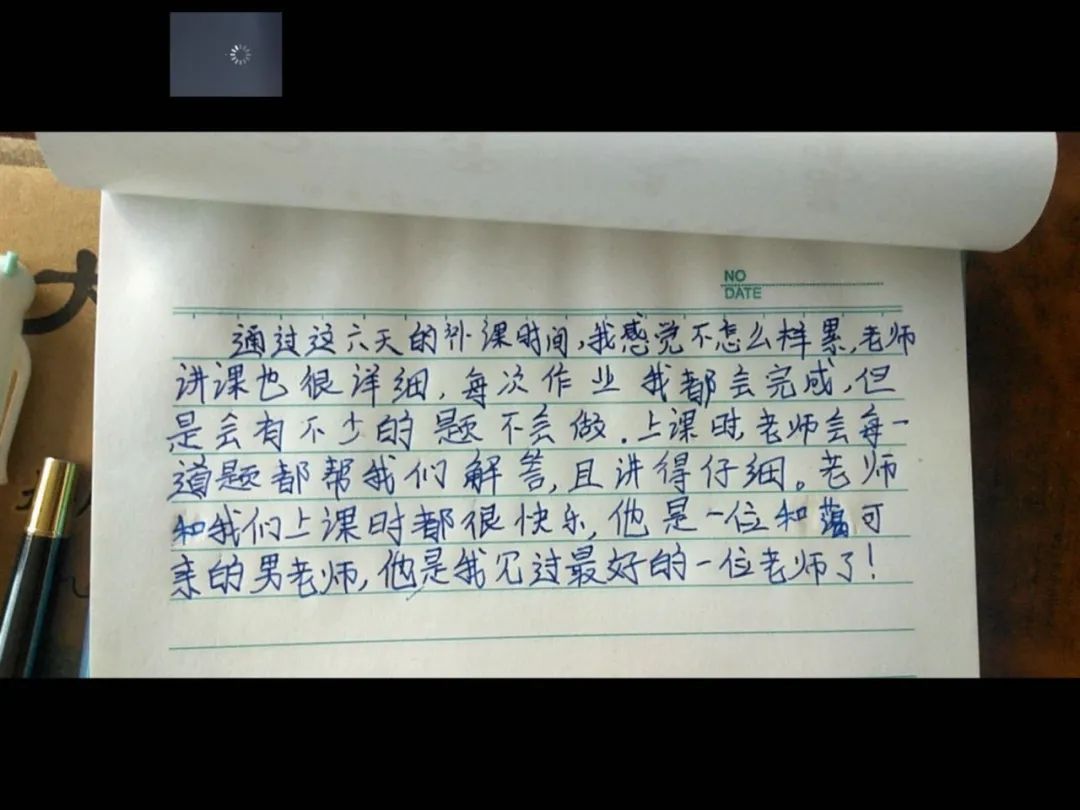 NO
DATE
通过这六天的补课时间,我感觉不怎么样累,老师
讲课也很详细,每次作业我都会完成,但
是会有不少的题不会做.上课时,老师会每一
道题都帮我们解答,且讲得仔细。老师
和我们上课时都很快乐,他是一位和蔼可
亲的男老师,他是我见过最好的一位老师了!